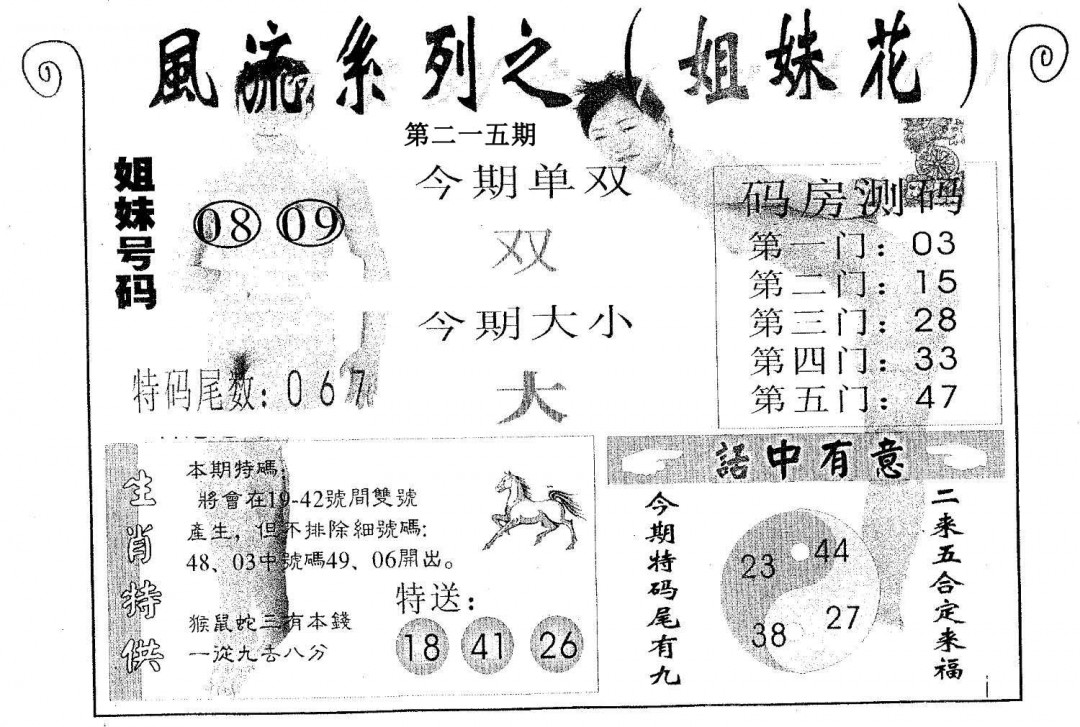 風流系列之（姐妹花）
第二一五期
姐妹号码
08 09
特码尾数：067
今期单双
双
今期大小
大
码房测码
第一门：03
第二门：15
第三门：28
第四门：33
第五门：47
生肖特供
本期特碼：
將會在19-42號間雙號
產生，但不排除細號碼：
48、03中號碼49、06開出。
猴鼠蛇三有本錢
一從九去八分
特送：
18 41 26
話中有意
今期特码尾有九
23 44
38 27
二来五合定来福